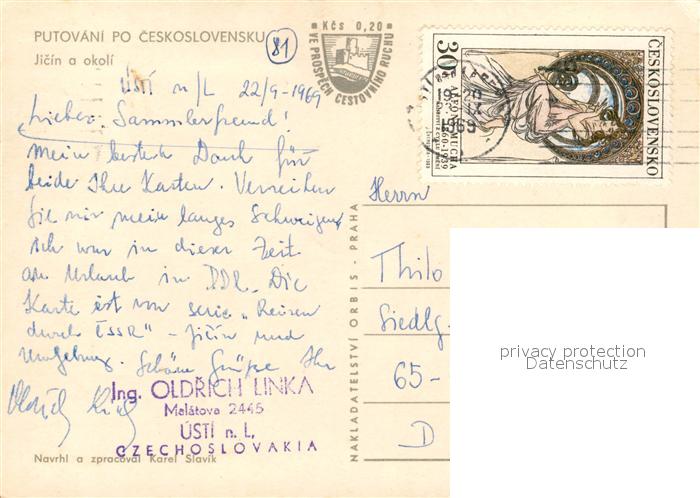 PUTOVÁNÍ PO ČESKOSLOVENSKU
81
Jičín a okolí
Kčs 0,20
VE PROSPĚCH CESTOVNÍHO RUCHU
ČESKOSLOVENSKO
30
ALFONS MUCHA
1860-1939
1969
ÚSTÍ n/L 22/9-1969
Lieber Sammlerfreund!
Mein besten Dank für
beide Ihre Karten. Verzeihen
Sie mir mein langes Schweigen
ich war in dieser Zeit
am Urlaub in DDR. Die
Karte ist von serie "Reisen
durch ČSSR" - Jičín und
Umgebung. Schöne Grüße Ihr
Ing. OLDŘICH LINKA
Malátova 2445
ÚSTÍ n. L.
CZECHOSLOVAKIA
Navrhl a zpracoval Karel Slavík
NAKLADATELSTVÍ ORBIS - PRAHA
Herrn
Thilo
Siedlg.
65-
D
privacy protection
Datenschutz